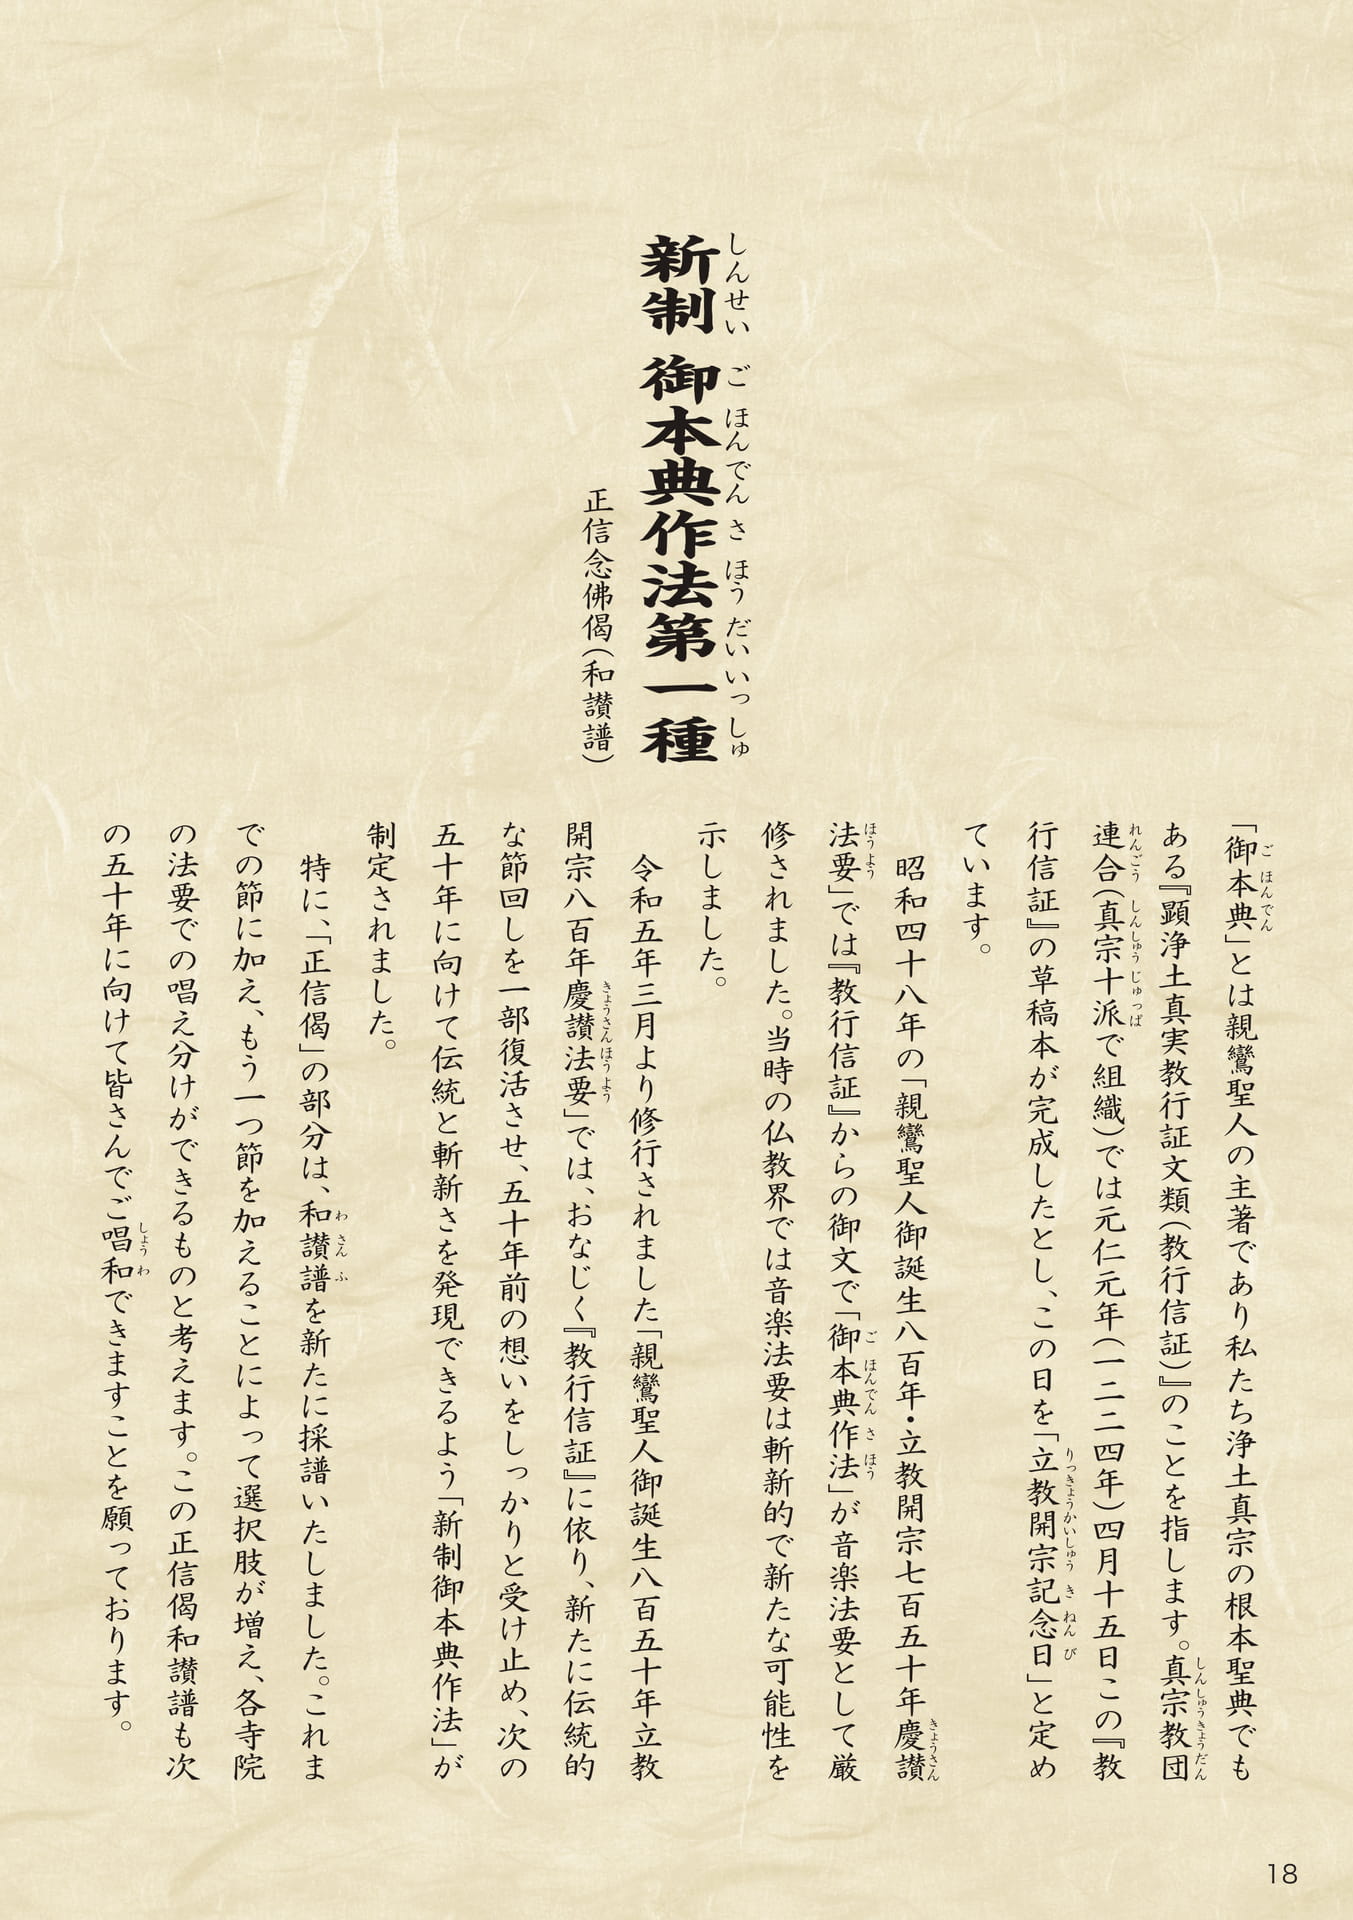 新制 御本典作法第一種
しんせい ご ほんでん さ ほう だい いっ しゅ
正信念佛偈(和讃譜)
「御本典」とは親鸞聖人の主著であり私たち浄土真宗の根本聖典でも
ご ほんでん
ある『顕浄土真実教行証文類(教行信証)』のことを指します。真宗教団
しんしゅうきょうだん
連合(真宗十派で組織)では元仁元年(一二二四年)四月十五日この『教
れんごう しんしゅう じゅっぱ
行信証』の草稿本が完成したとし、この日を「立教開宗記念日」と定め
りっきょうかいしゅう き ねん び
ています。
昭和四十八年の「親鸞聖人御誕生八百年・立教開宗七百五十年慶讃
きょうさん
法要」では『教行信証』からの御文で「御本典作法」が音楽法要として厳
ほうよう ご ほんでん さ ほう
修されました。当時の仏教界では音楽法要は斬新的で新たな可能性を
示しました。
令和五年三月より修行されました「親鸞聖人御誕生八百五十年立教
開宗八百年慶讃法要」では、おなじく『教行信証』に依り、新たに伝統的
きょうさんほうよう
な節回しを一部復活させ、五十年前の想いをしっかりと受け止め、次の
五十年に向けて伝統と斬新さを発現できるよう「新制御本典作法」が
制定されました。
特に、「正信偈」の部分は、和讃譜を新たに採譜いたしました。これま
わ さん ふ
での節に加え、もう一つ節を加えることによって選択肢が増え、各寺院
の法要での唱え分けができるものと考えます。この正信偈和讃譜も次
の五十年に向けて皆さんでご唱和できますことを願っております。
しょう わ
18